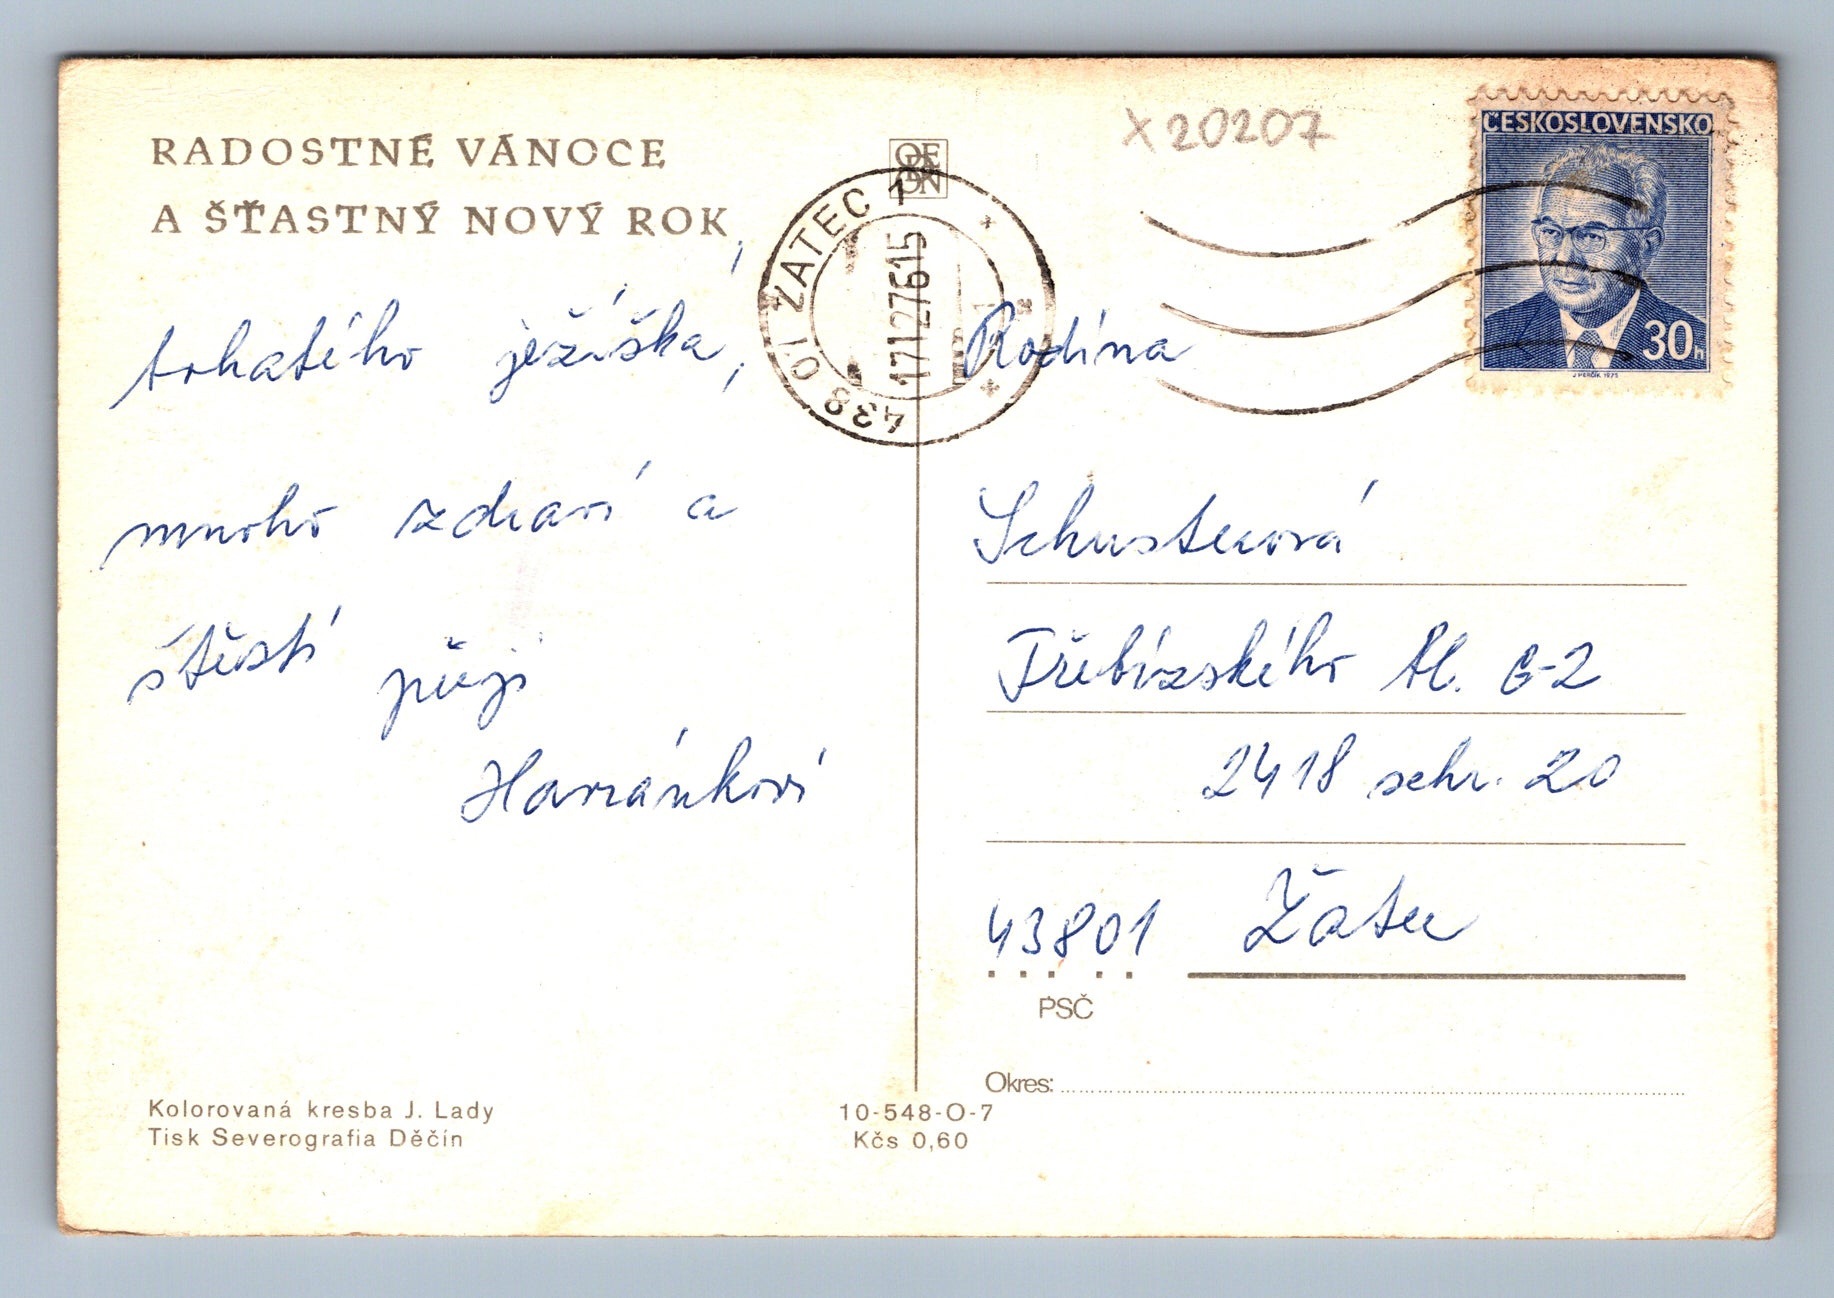 RADOSTNÉ VÁNOCE
A ŠŤASTNÝ NOVÝ ROK,
bohatého ježíška,
mnoho zdraví a
štěstí přejí
Havránkovi
Kolorovaná kresba J. Lady
Tisk Severografia Děčín
ODEON
438 01 ŽATEC 1
17.12.76 15
10-548-O-7
Kčs 0,60
X20207
ČESKOSLOVENSKO
30h
Rodina
Schusterová
Třebízského bl. G-2
2418 schr. 20
43801 Žatec
PSČ
Okres: